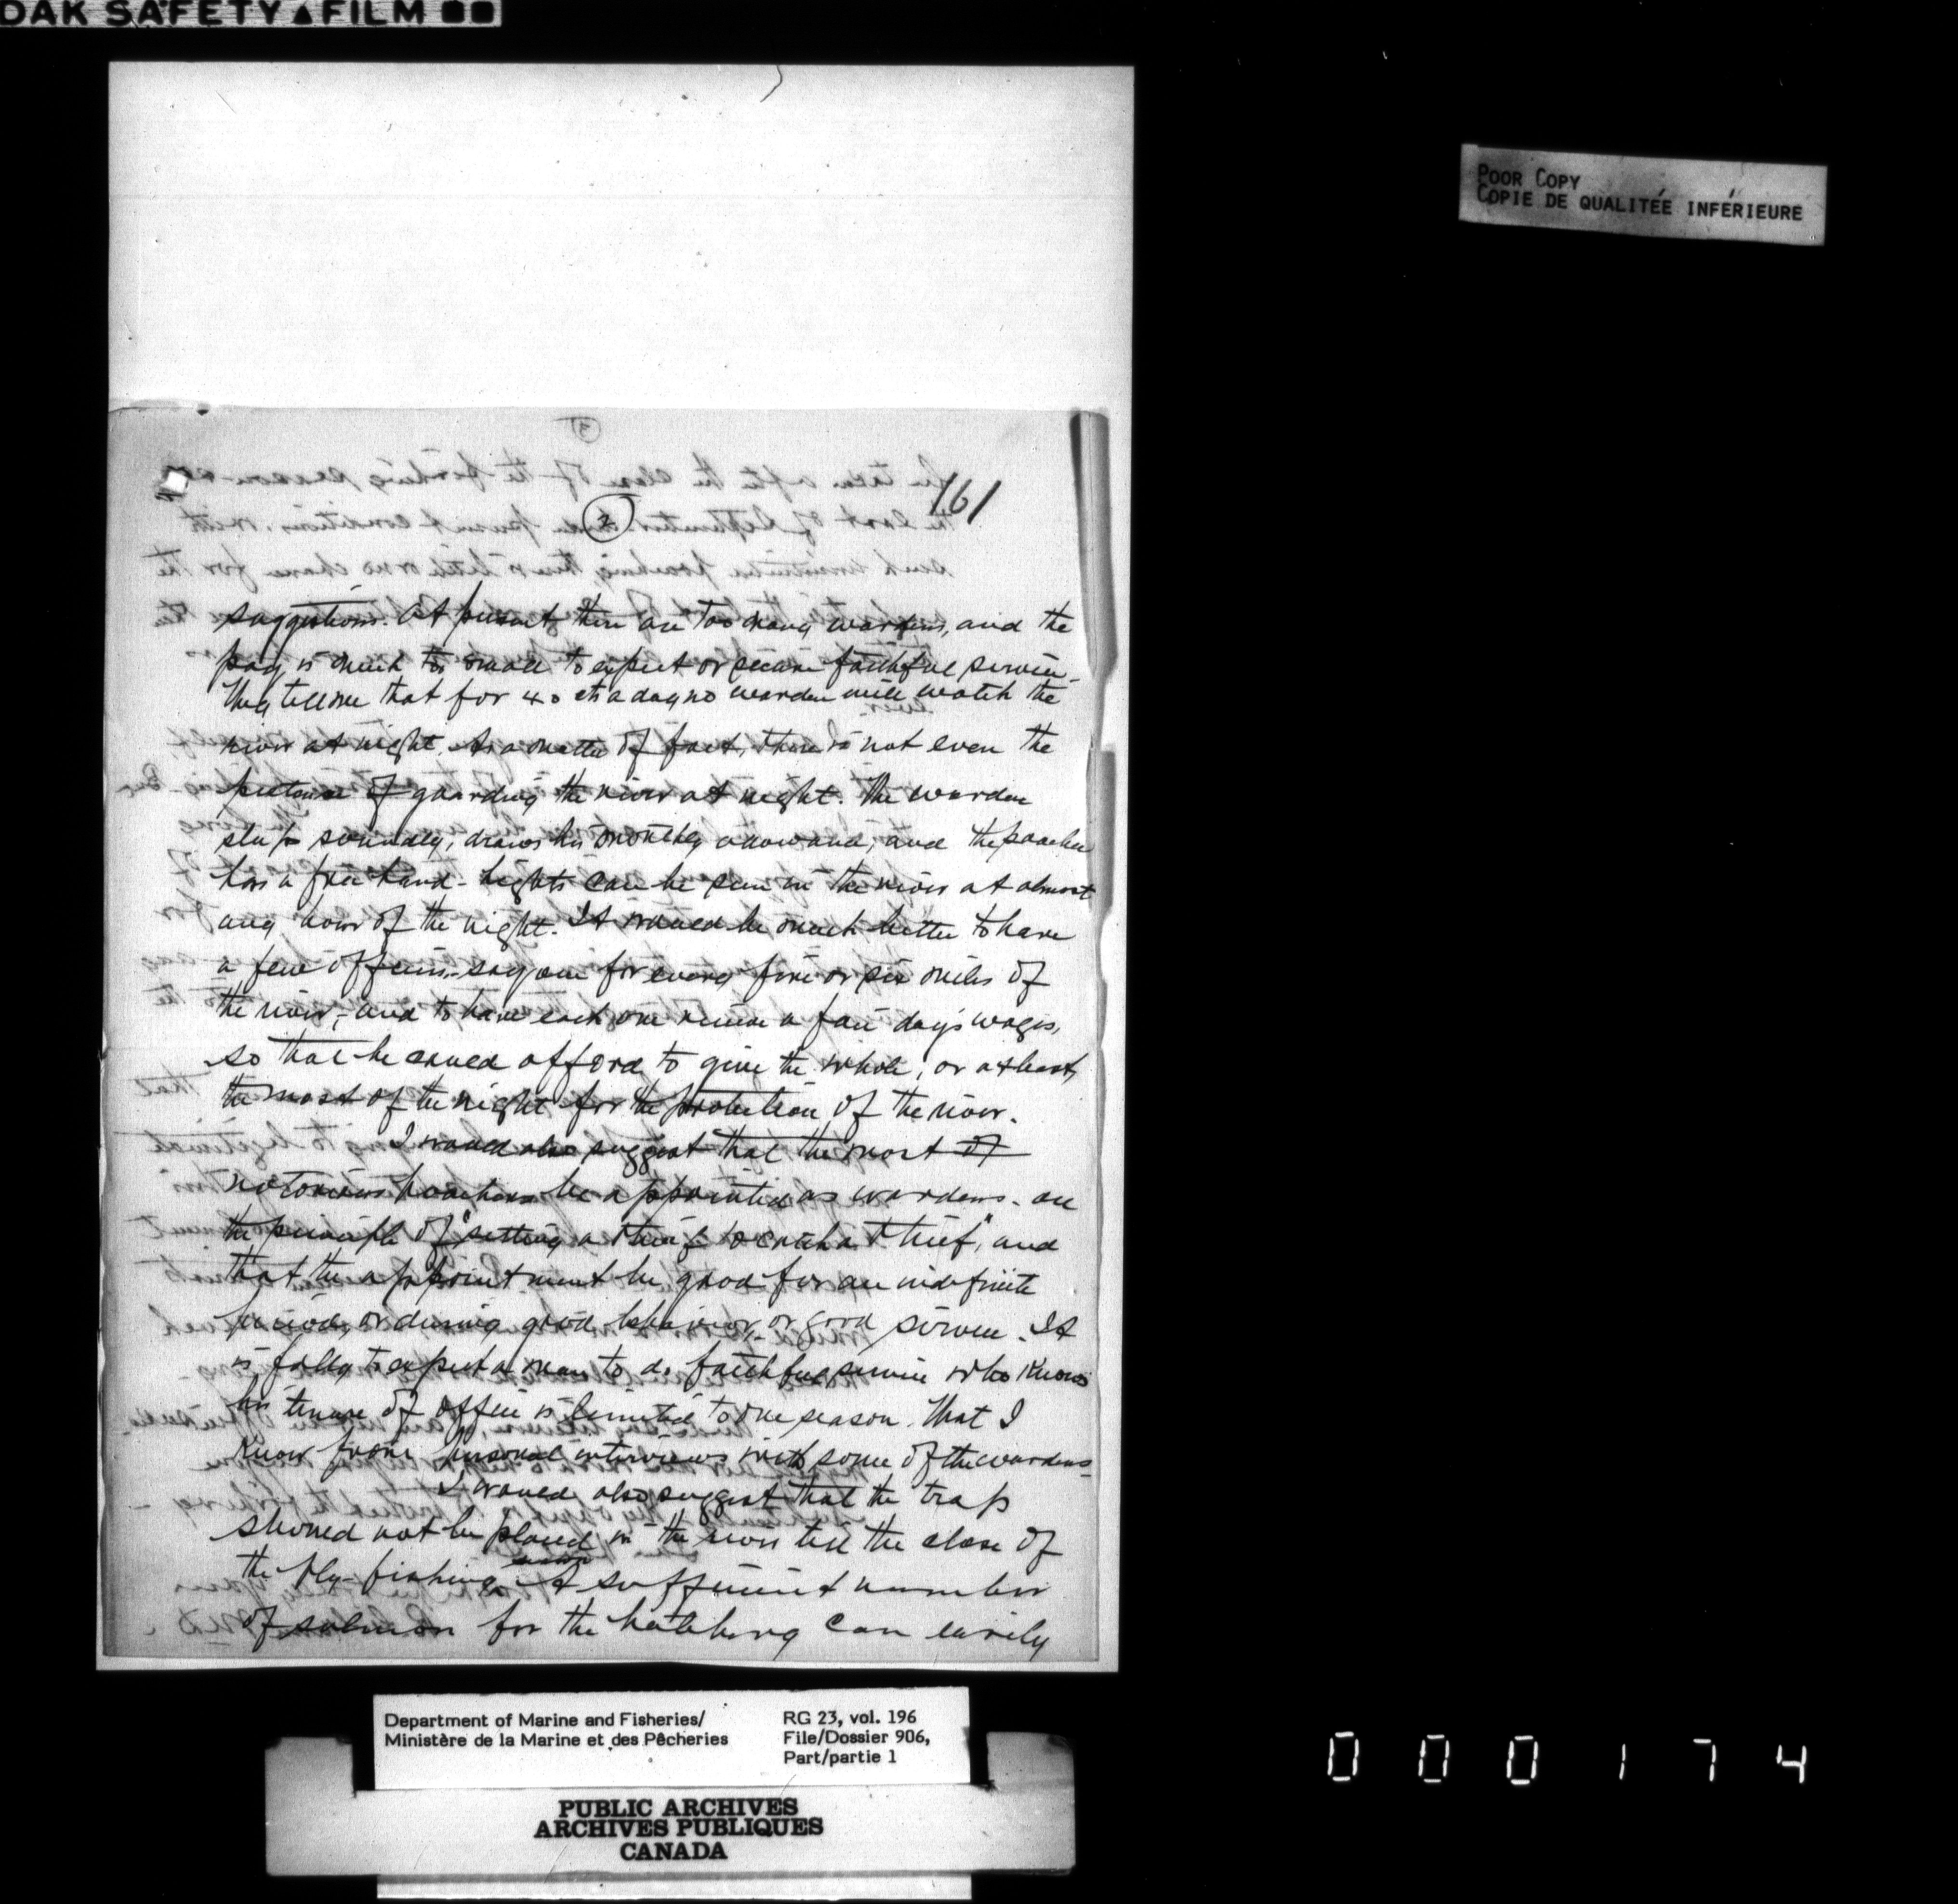 DAK SAFETY ▲ FILM
POOR COPY
COPIE DE QUALITÉE INFÉRIEURE
161
2
suggestions. At present there are too many wardens, and the
pay is much too small to expect or secure faithful service.
They tell me that for 40 cts a day no warden will watch the
river at night. As a matter of fact, there is not even the
pretense of guarding the river at night. The warden
sleeps soundly, draws his monthly allowance, and the poacher
has a free hand - Lights can be seen on the river at almost
any hour of the night. It would be much better to have
a few officers, - say one for every five or six miles of
the river, - and to have each one receive a fair day's wages,
so that he could afford to give the whole, or at least,
the most of the night for the protection of the river.
I would also suggest that the most of
notorious poachers be appointed as wardens - on
the principle of "setting a thief to catch a thief", and
that the appointment be good for an indefinite
period, or during good behavior, or good service. It
is folly to expect a man to do faithful service who knows
his tenure of office is limited to one season. That I
know from personal interviews with some of the wardens -
I would also suggest that the trap
should not be placed in the river till the close of
the fly-fishing season. A sufficient number
of salmon for the hatchery can easily
Department of Marine and Fisheries/
Ministère de la Marine et des Pêcheries
RG 23, vol. 196
File/Dossier 906,
Part/partie 1
PUBLIC ARCHIVES
ARCHIVES PUBLIQUES
CANADA
000174